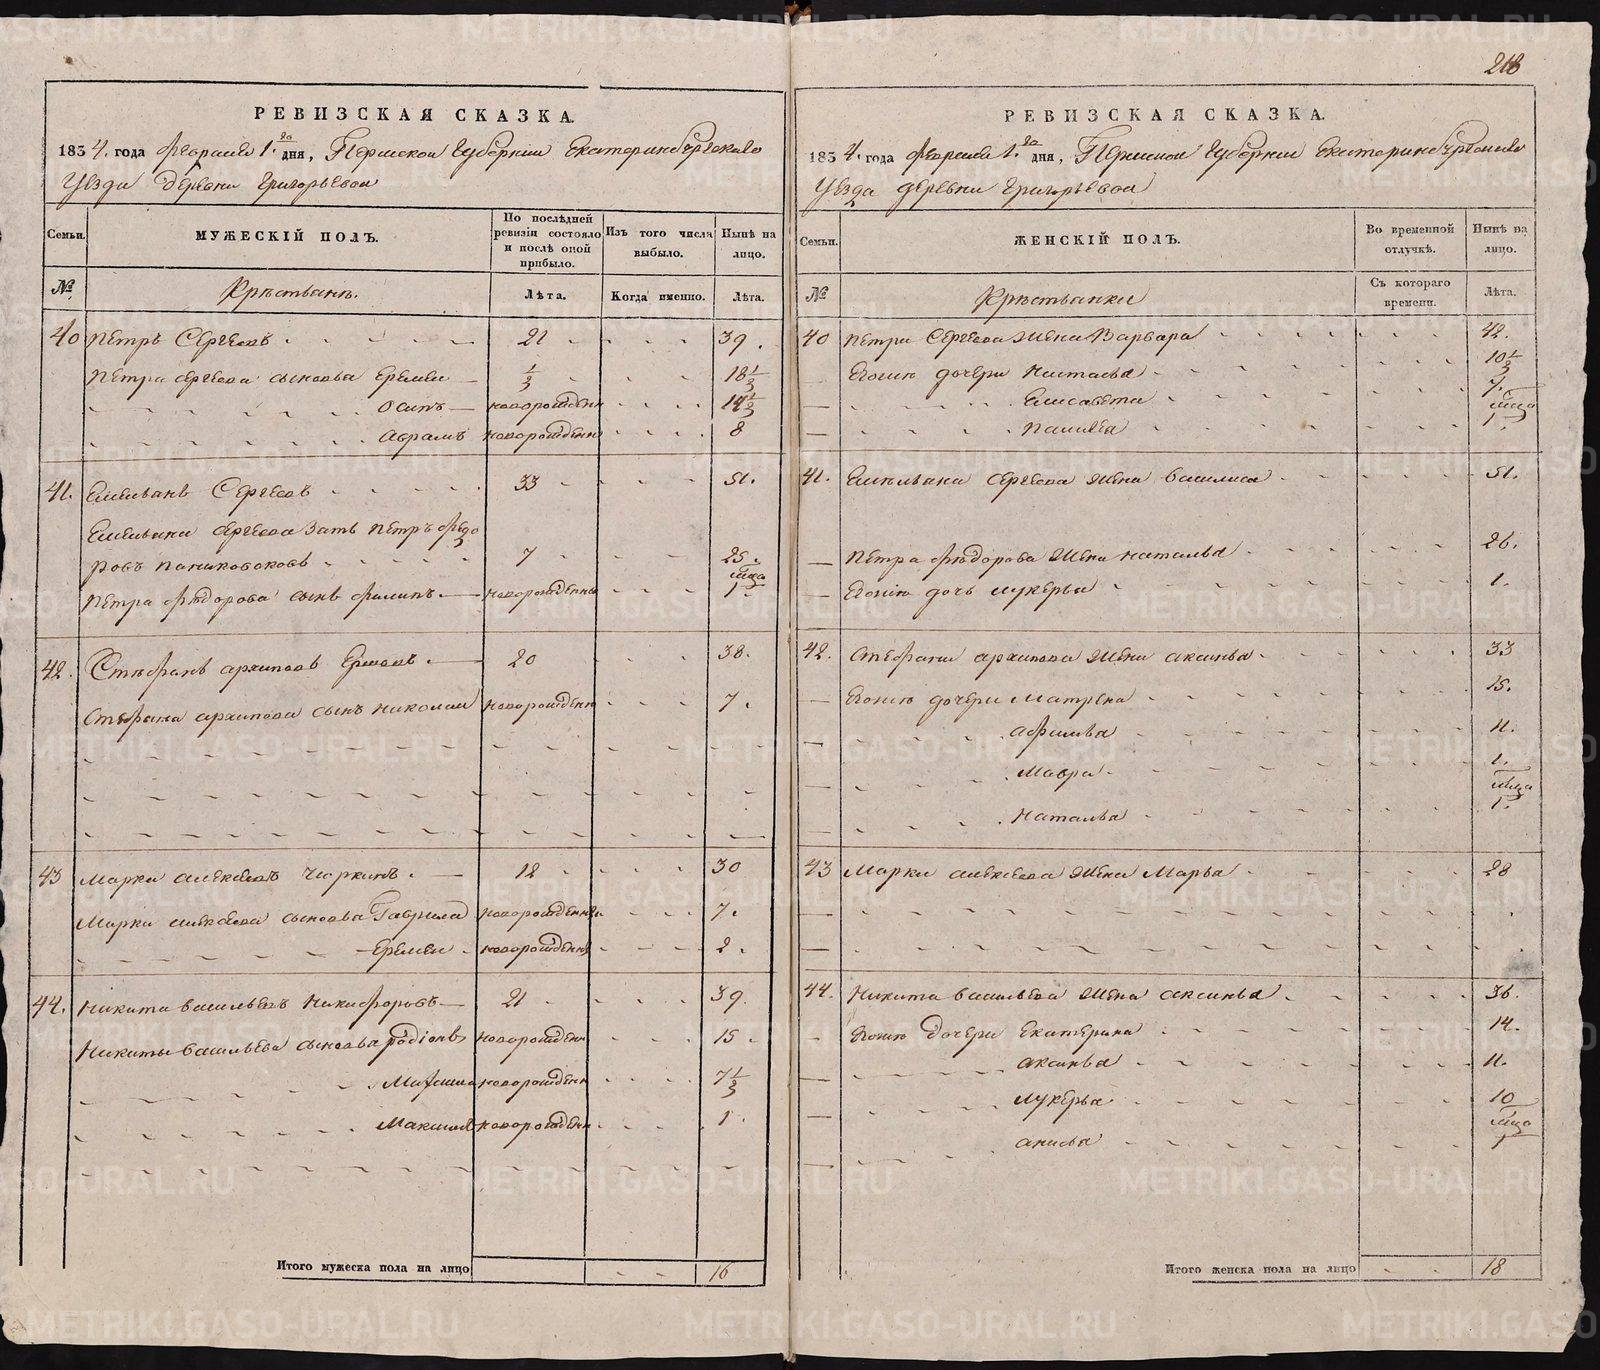 218
РЕВИЗСКАЯ СКАЗКА.
1834. года февраля 1.го дня, Пермской Губернии Екатеринбургскаго
Уезда деревни Григорьевой
Семьи.
МУЖЕСКІЙ ПОЛЪ.
По послѣдней ревизіи состояло и послѣ оной прибыло.
Изъ того числа выбыло.
Нынѣ на лицо.
№
Крѣстьянѣ.
Лѣта.
Когда именно.
Лѣта.
40 Петръ Сергеевъ 21 39.
Петра Сергеева сыновья Еремеи 1/2 18 1/2
Осипъ новорожденн 14 1/2
Абрамъ новорожденн 8
41. Емельянъ Сергеевъ 33 51.
Емельяна Сергеева Зять Петръ Федо
ровъ 7 25.
Петра Федорова сынъ Филипъ новорожденны мца 1.
42. Стефанъ архиповъ Ершовъ 20 38.
Стефана архипова сынъ николаи новорожденн 7.
43 Марки алексеевъ Чюркинъ 12 30
Марки алексеева сыновья Гаврила новорожденны 7.
Еремеи новорожденны 2.
44. Никита васильевъ Никифоровъ 21 39.
Никиты васильева сыновья родіонъ новорожденн 15.
новорожденн 7 1/2
Максимъ новорожденн 1.
Итого мужеска пола на лицо 16
РЕВИЗСКАЯ СКАЗКА.
1834. года февраля 1.го дня, Пермской Губернии Екатеринбургскаго
Уезда деревни Григорьевой
Семьи.
ЖЕНСКІЙ ПОЛЪ.
Во временной отлучкѣ.
Нынѣ на лицо.
№
Крѣстьянки
Съ котораго времени.
Лѣта.
40 Петра Сергеева жена Варвара 42.
Евоныѣ дочери настасья 10 1/2
Елисавета 7.
мца 1.
41. Емельяна Сергеева жена василиса 51.
Петра Федорова жена наталья 26.
Евоныѣ дочь лукерья 1.
42. Стефана архипова жена аксинья 33
Евоныѣ дочери Матрена 15.
афимья 11.
Мавра 1.
Наталья мца 1.
43 Марки алексеева жена Марья 28
44. Никита васильева жена аксинья 36.
Евоныѣ дочери Екатерина 14.
аксинья 11.
лукерья 10
анисья мца 1
Итого женска пола на лицо 18
METRIKI.GASO-URAL.RU